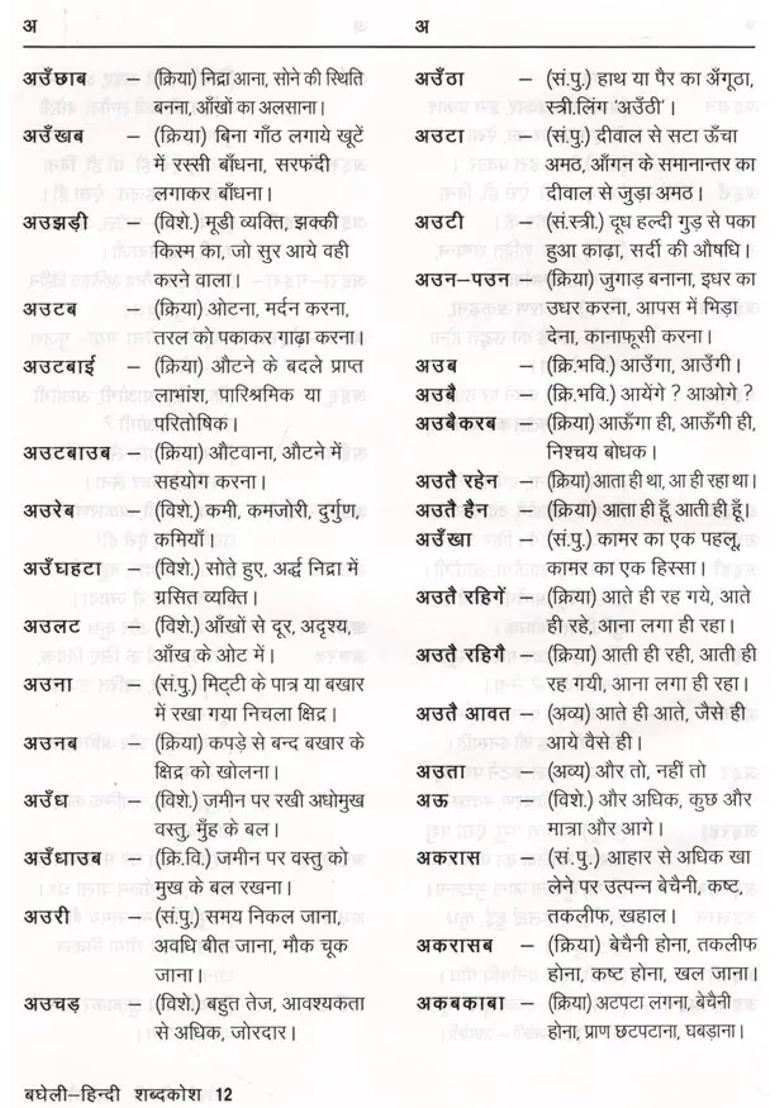 अ
अउँछाब – (क्रिया) निद्रा आना, सोने की स्थिति
बनना, आँखों का अलसाना।
अउँखब – (क्रिया) बिना गाँठ लगाये खूटें
में रस्सी बाँधना, सरफंदी
लगाकर बाँधना।
अउझड़ी – (विशे.) मूडी व्यक्ति, झक्की
किस्म का, जो सुर आये वही
करने वाला।
अउटब – (क्रिया) ओटना, मर्दन करना,
तरल को पकाकर गाढ़ा करना।
अउटबाई – (क्रिया) औटने के बदले प्राप्त
लाभांश, पारिश्रमिक या
परितोषिक।
अउटबाउब – (क्रिया) औंटवाना, औटने में
सहयोग करना।
अउरेब – (विशे.) कमी, कमजोरी, दुर्गुण,
कमियाँ।
अउँघहटा – (विशे.) सोते हुए, अर्द्ध निद्रा में
ग्रसित व्यक्ति।
अउलट – (विशे.) आँखों से दूर, अदृश्य,
आँख के ओट में।
अउना – (सं.पु.) मिट्टी के पात्र या बखार
में रखा गया निचला क्षिद्र।
अउनब – (क्रिया) कपड़े से बन्द बखार के
क्षिद्र को खोलना।
अउँध – (विशे.) ज़मीन पर रखी अधोमुख
वस्तु, मुँह के बल।
अउँधाउब – (क्रि.वि.) जमीन पर वस्तु को
मुख के बल रखना।
अउरी – (सं.पु.) समय निकल जाना,
अवधि बीत जाना, मौक चूक
जाना।
अउचड़ – (विशे.) बहुत तेज, आवश्यकता
से अधिक, जोरदार।
अ
अउँठा – (सं.पु.) हाथ या पैर का अँगूठा,
स्त्री.लिंग 'अउँठी'।
अउटा – (सं.पु.) दीवाल से सटा ऊँचा
अमठ, आँगन के समानान्तर का
दीवाल से जुड़ा अमठ।
अउटी – (सं.स्त्री.) दूध हल्दी गुड़ से पका
हुआ काढ़ा, सर्दी की औषधि।
अउन–पउन – (क्रिया) जुगाड़ बनाना, इधर का
उधर करना, आपस में भिड़ा
देना, कानाफूसी करना।
अउब – (क्रि.भवि.) आउँगा, आउँगी।
अउबै – (क्रि.भवि.) आयेंगे ? आओगे ?
अउबैकरब – (क्रिया) आऊँगा ही, आऊँगी ही,
निश्चय बोधक।
अउतै रहेन – (क्रिया) आता ही था, आ ही रहा था।
अउतै हैन – (क्रिया) आता ही हूँ, आती ही हूँ।
अउँखा – (सं.पु.) कामर का एक पहलू,
कामर का एक हिस्सा।
अउतै रहिगें – (क्रिया) आते ही रह गये, आते
ही रहे, आना लगा ही रहा।
अउतै रहिगै – (क्रिया) आती ही रही, आती ही
रह गयी, आना लगा ही रहा।
अउतै आवत – (अव्य) आते ही आते, जैसे ही
आये वैसे ही।
अउता – (अव्य) और तो, नहीं तो
अऊ – (विशे.) और अधिक, कुछ और
मात्रा और आगे।
अकरास – (सं.पु.) आहार से अधिक खा
लेने पर उत्पन्न बेचैनी, कष्ट,
तकलीफ, खहाल।
अकरासब – (क्रिया) बेचैनी होना, तकलीफ
होना, कष्ट होना, खल जाना।
अकबकाबा – (क्रिया) अटपटा लगना, बेचैनी
होना, प्राण छटपटाना, घबड़ाना।
बघेली–हिन्दी शब्दकोश 12